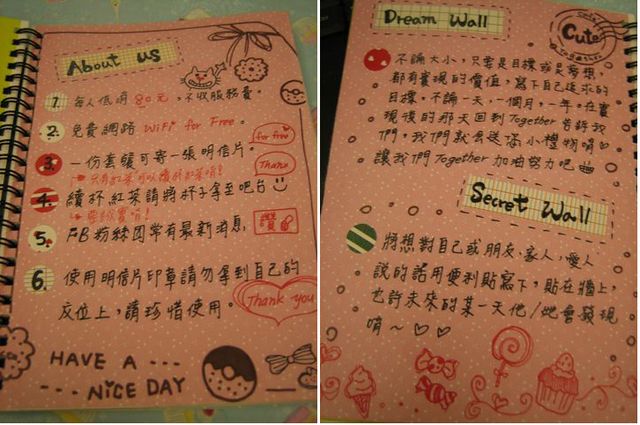 About us
1. 每人低消80元，不收服務費。
2. 免費網路 WiFi for Free。
for free
3. 一份套餐可寄一張明信片。
Thanks
只有紅茶可以續杯紅茶唷!
4. 續杯紅茶請將杯子拿至吧台
5. FB粉絲團常有最新消息
讚
6. 使用明信片印章請勿拿到自己的
座位上，請珍惜使用。
Thank you
HAVE A ---
--- NiCE DAY
Dream Wall
Cute
Together
不論大小，只要是目標或是夢想，
都有實現的價值，寫下自己追求的
目標。不論一天，一個月，一年。在實
現後的那天回到Together告訴我
們，我們就會送你小禮物唷♡
讓我們Together加油努力吧
Secret Wall
將想對自己或朋友、家人、愛人
說的話用便利貼寫下，貼在牆上，
也許未來的某一天他/她會發現
唷~♡♡